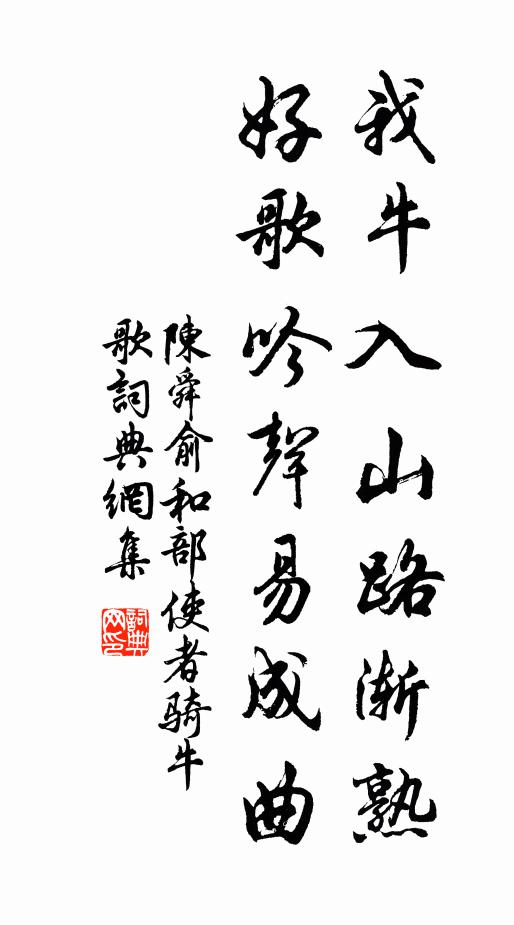 我牛入山路渐熟
好歌吟聲易成曲
陳舜俞和部使者骑牛
歌詞典網集
詞典网印